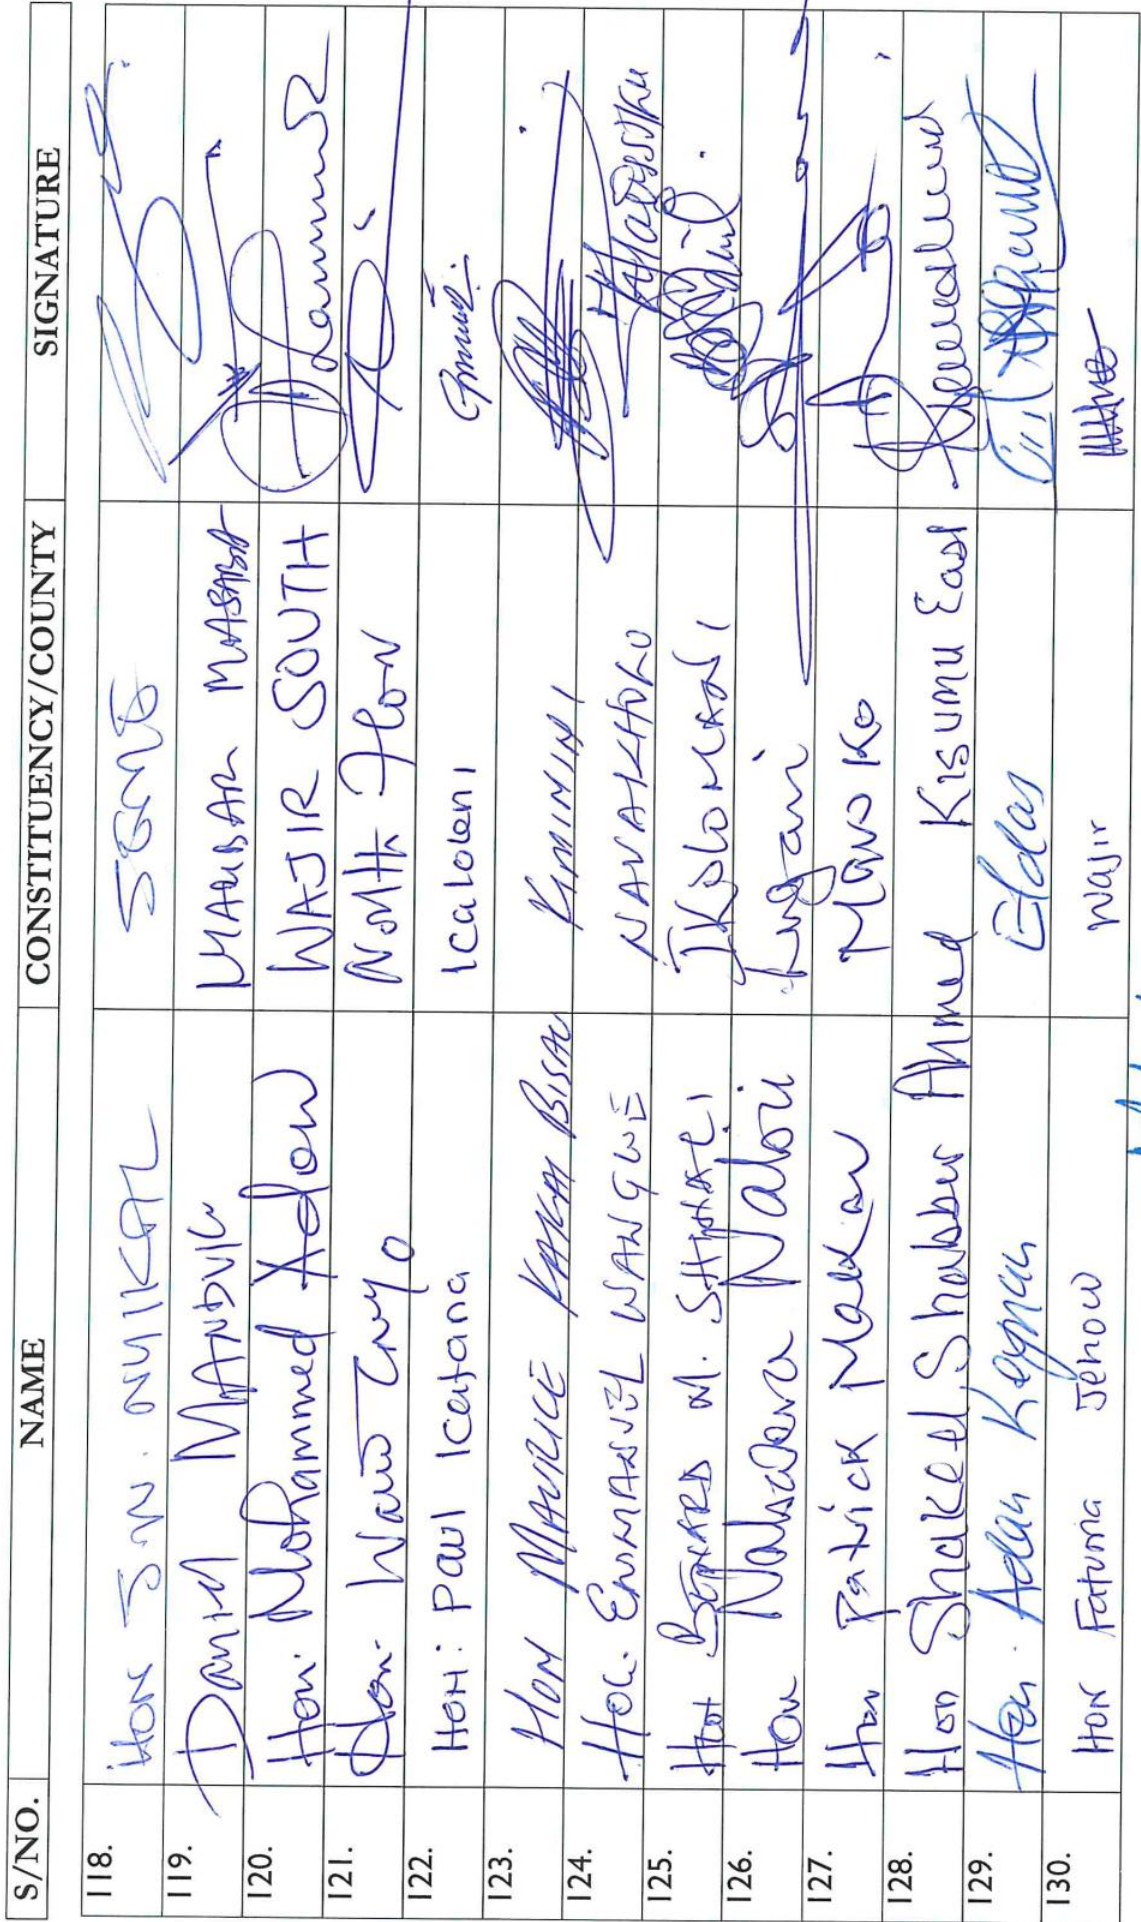 S/NO. NAME CONSTITUENCY/COUNTY SIGNATURE
118. HON J.W. NYIKAL SEME
119. Daniel MANDUKU MASABA
120. Hon. Mohammed Adow WAJIR SOUTH
121. Hon. North Horr
122. HON: Paul Katana Kaloleni
123. HON MAURICE KAKAI BISAU KIMININI
124. EMMANUEL WANGWE NAVAKHOLO
125. Hon BERNARD M. SHINALI IKOLOMANI
126. Hon Nabwera Nabii Lugari
127. Hon Patrick Makau Mavoko
128. Hon Shakeel Shabbir Ahmed Kisumu East
129. Hon. Adan Keynan Eldas
130. HON Fatuma Jehow Wajir